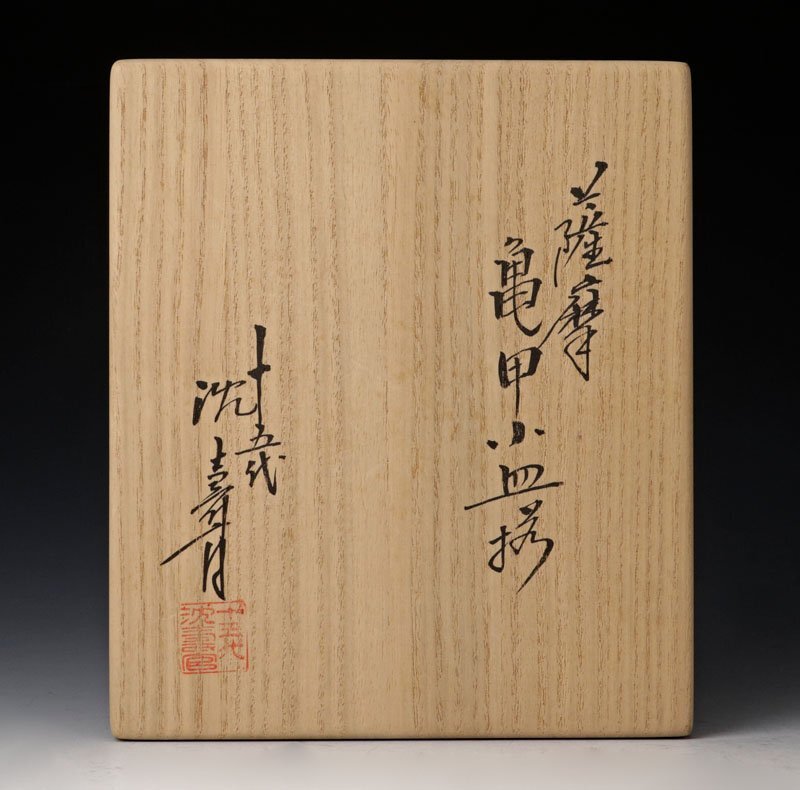 薩摩
亀甲小皿揃
十五代
沈壽官
十五代
沈壽官